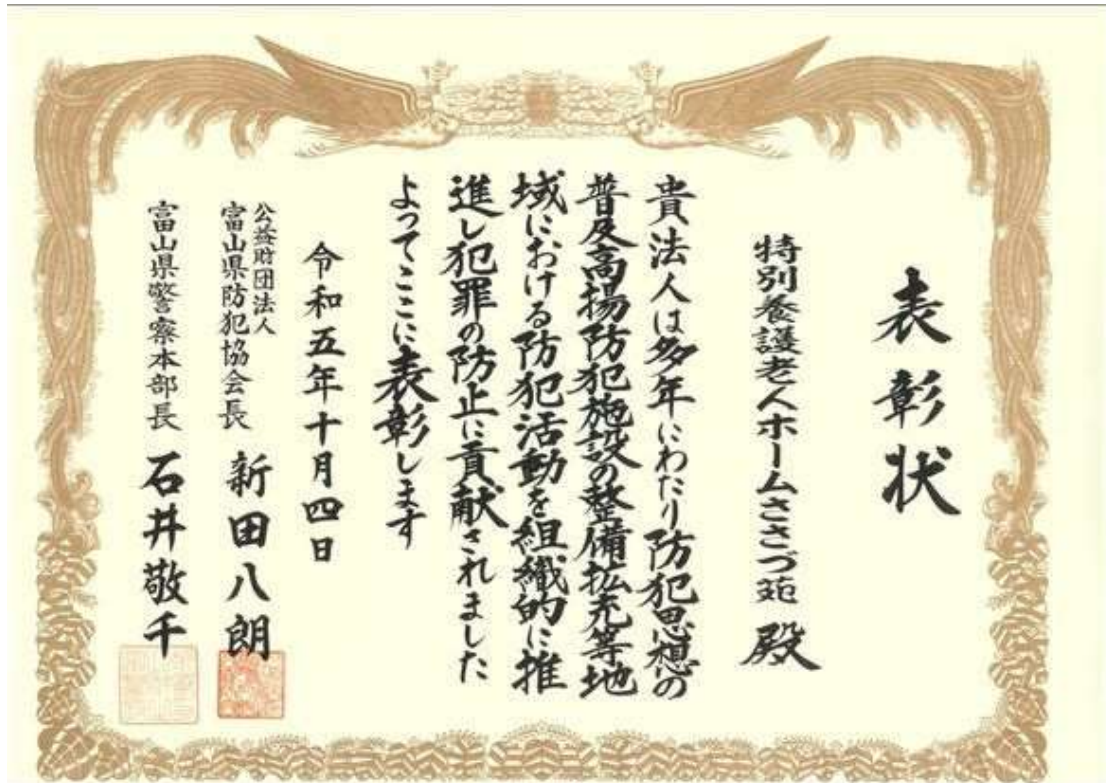 表彰状
特別養護老人ホームささづ苑 殿
貴法人は多年にわたり防犯思想の
普及高揚防犯施設の整備拡充等地
域における防犯活動を組織的に推
進し犯罪の防止に貢献されました
よってここに表彰します
令和五年十月四日
公益財団法人
富山県防犯協会長 新田八朗
富山県警察本部長 石井敬千